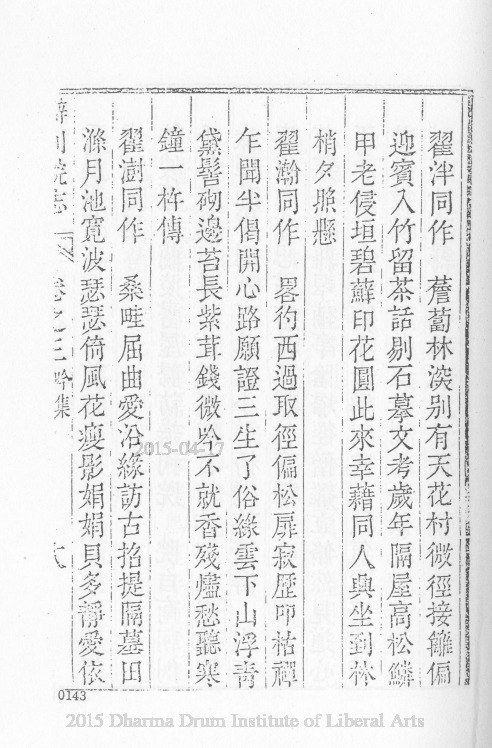 翟泮同作　薝蔔林深别有天花村微徑接籬偏
迎賓入竹留茶話剔石摹文考歲年隔屋高松鱗
甲老侵垣碧蘚印花圓此來幸藉同人興坐到林
梢夕照懸
翟瀚同作　畧彴西過取徑偏松扉寂歷叩枯禪
乍聞半偈開心路願證三生了俗緣雲下山浮青
黛髻砌邊苔長紫茸錢微吟不就香殘燼愁聽寒
鐘一杵傳
翟澍同作　桑畦屈曲愛沿緣訪古招提隔墓田
滌月池寬波瑟瑟倚風花瘦影娟娟貝多靜愛依
卷之三
2015-04-27
0143
2015 Dharma Drum Institute of Liberal Arts